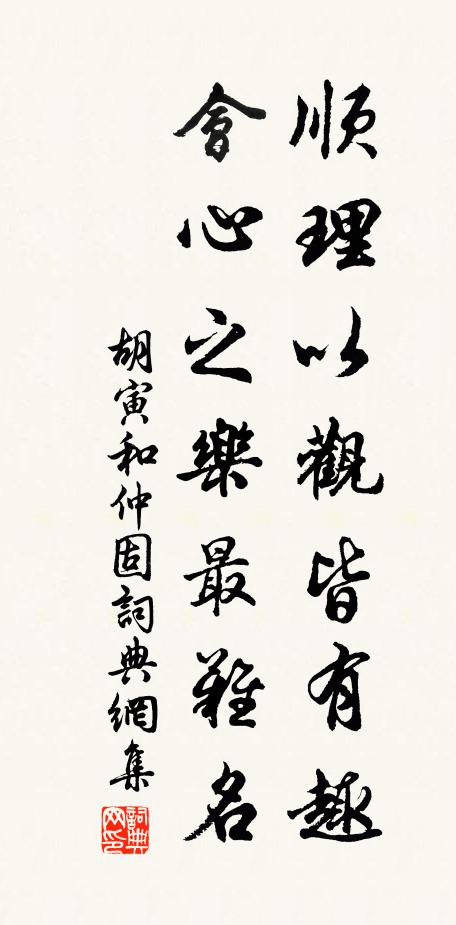 順理以觀皆有趣
會心之樂最難名
胡寅和仲固詞典網集
詞典網印